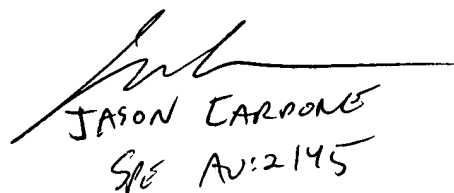 JASON CARDONE
SPE AU:2145